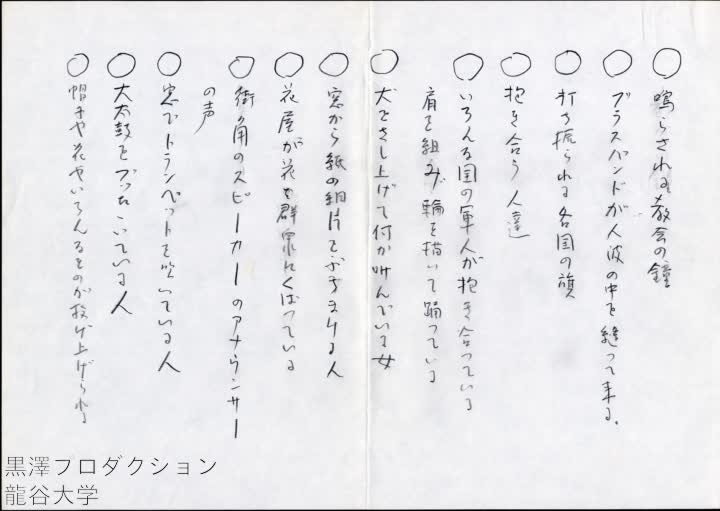 ○ 鳴らされる教会の鐘
○ ブラスバンドが人波の中を縫って来る。
○ 打ち振られる各国の旗
○ 抱き合う人達
○ いろんな国の軍人が抱き合っている
肩を組み輪を描いて踊っている
○ 犬をさし上げて何か叫んでいる女
○ 窓から紙の細片をぶちまける人
○ 花屋が花を群衆にくばっている
○ 街角のスピーカーのアナウンサー
の声
○ 窓でトランペットを吹いている人
○ 大太鼓をブッたゝいている人
○ 帽子や花やいろんなものが投げ上げられる
黒澤プロダクション
龍谷大学